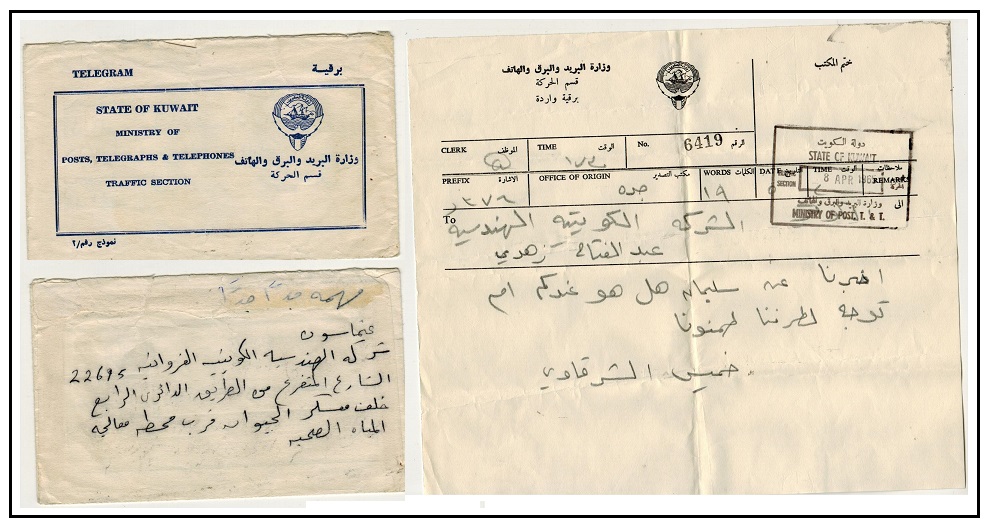 TELEGRAM برقية
STATE OF KUWAIT
MINISTRY OF
POSTS, TELEGRAPHS & TELEPHONES وزارة البريد والبرق والهاتف
TRAFFIC SECTION قسم الحركة
نموذج رقم/٢
مهمه جداً جداً
شركه الهندسيه الكويتيه الفروانيه
الشارع المتفرع من الطريق الدائرى الرابع
خلف معسكر الجيوان قرب محطه معالجه
المياه الصحيه
وزارة البريد والبرق والهاتف
قسم الحركة
برقية واردة
ختم المكتب
CLERK الموظف TIME الوقت No. 6419 الرقم
PREFIX الاشارة OFFICE OF ORIGIN مكتب التصدير جده WORDS الكلمات ١٩ DATE التاريخ TIME الوقت REMARKS ملاحظات
دولة الكويت
STATE OF KUWAIT
8 APR
SECTION
وزارة البريد والبرق والهاتف
MINISTRY OF POST, T. & T.
To الى
الشركه الكويتيه الهندسيه
عبد الفتاح زهدي
اخبرنا عن سليمان هل هو عندكم ام
توجه لطرفنا طمنونا
خميس الشرقاوي